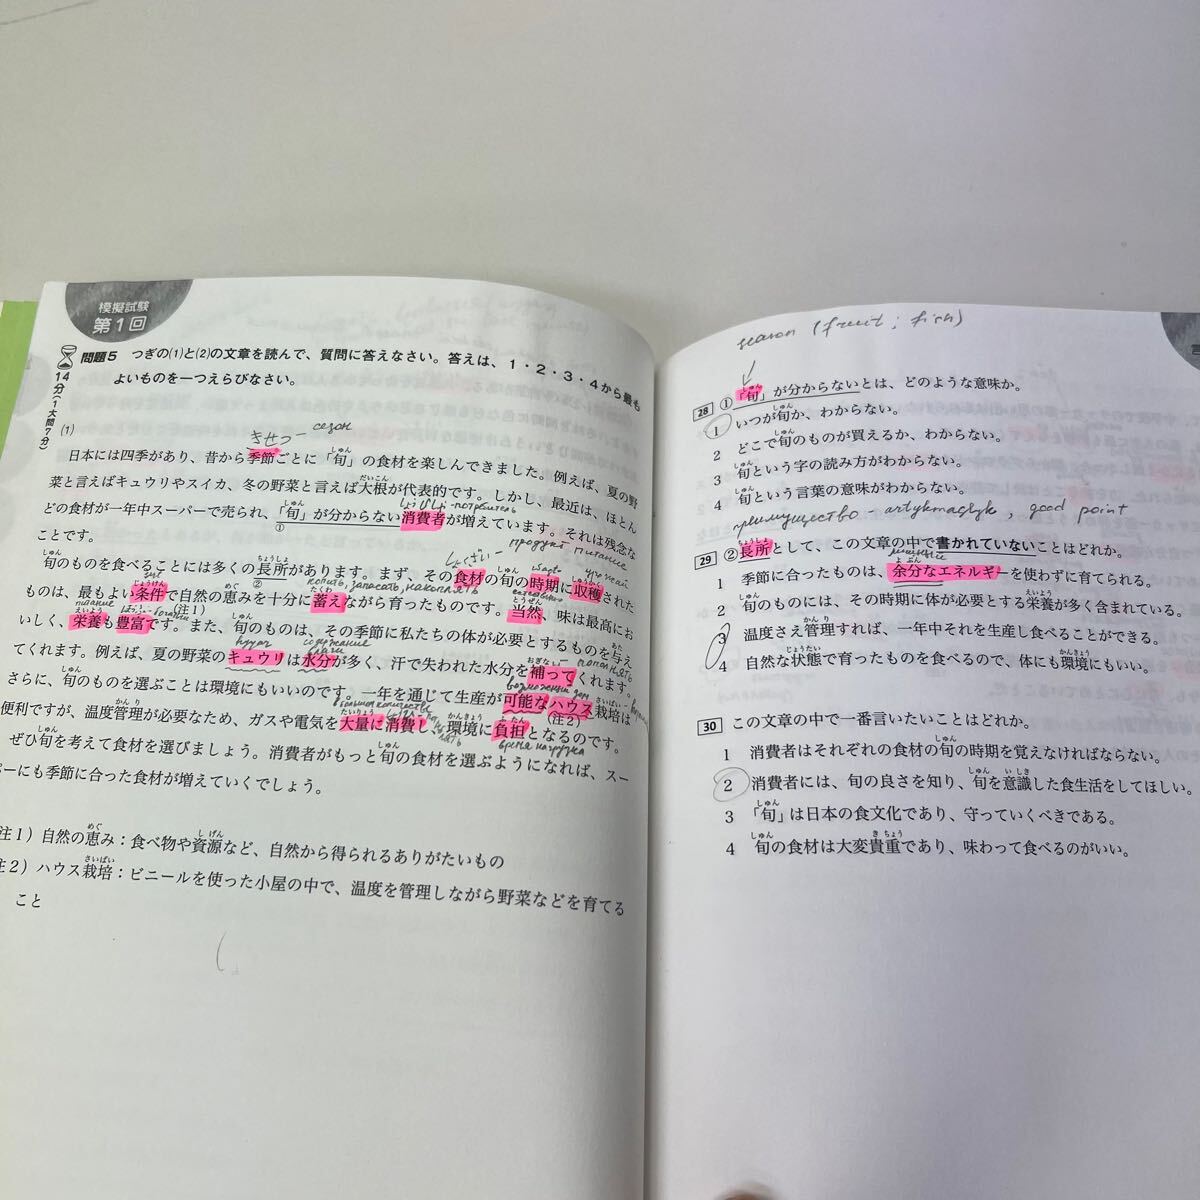 模擬試験
第1回
14分(1大問7分)
問題5 つぎの(1)と(2)の文章を読んで、質問に答えなさい。答えは、1・2・3・4から最も
よいものを一つえらびなさい。
(1)
きせつ - сезон
日本には四季があり、昔から季節ごとに「旬」の食材を楽しんできました。例えば、夏の野
菜と言えばキュウリやスイカ、冬の野菜と言えば大根が代表的です。しかし、最近は、ほとん
どの食材が一年中スーパーで売られ、「旬」が分からない消費者が増えています。それは残念な
①
ことです。
продукт питание
旬のものを食べることには多くの長所があります。まず、その食材の旬の時期に収穫された
②
копить, запасать, накоплять
ものは、最もよい条件で自然の恵みを十分に蓄えながら育ったものです。当然、味は最高にお
いしく、栄養も豊富です。また、旬のものは、その季節に私たちの体が必要とするものを与え
(注1)
てくれます。例えば、夏の野菜のキュウリは水分が多く、汗で失われた水分を補ってくれます。
さらに、旬のものを選ぶことは環境にもいいのです。一年を通じて生産が可能なハウス栽培は
(注2)
便利ですが、温度管理が必要なため、ガスや電気を大量に消費し、環境に負担となるのです。
ぜひ旬を考えて食材を選びましょう。消費者がもっと旬の食材を選ぶようになれば、スー
パーにも季節に合った食材が増えていくでしょう。
注1）自然の恵み：食べ物や資源など、自然から得られるありがたいもの
注2）ハウス栽培：ビニールを使った小屋の中で、温度を管理しながら野菜などを育てる
こと
season (fruit; fish)
28 ①「旬」が分からないとは、どのような意味か。
1 いつが旬か、わからない。
2 どこで旬のものが買えるか、わからない。
3 旬という字の読み方がわからない。
4 旬という言葉の意味がわからない。
преимущество - artykmaçlyk, good point
29 ②長所として、この文章の中で書かれていないことはどれか。
1 季節に合ったものは、余分なエネルギーを使わずに育てられる。
2 旬のものには、その時期に体が必要とする栄養が多く含まれている。
3 温度さえ管理すれば、一年中それを生産し食べることができる。
4 自然な状態で育ったものを食べるので、体にも環境にもいい。
30 この文章の中で一番言いたいことはどれか。
1 消費者はそれぞれの食材の旬の時期を覚えなければならない。
2 消費者には、旬の良さを知り、旬を意識した食生活をしてほしい。
3 「旬」は日本の食文化であり、守っていくべきである。
4 旬の食材は大変貴重であり、味わって食べるのがいい。